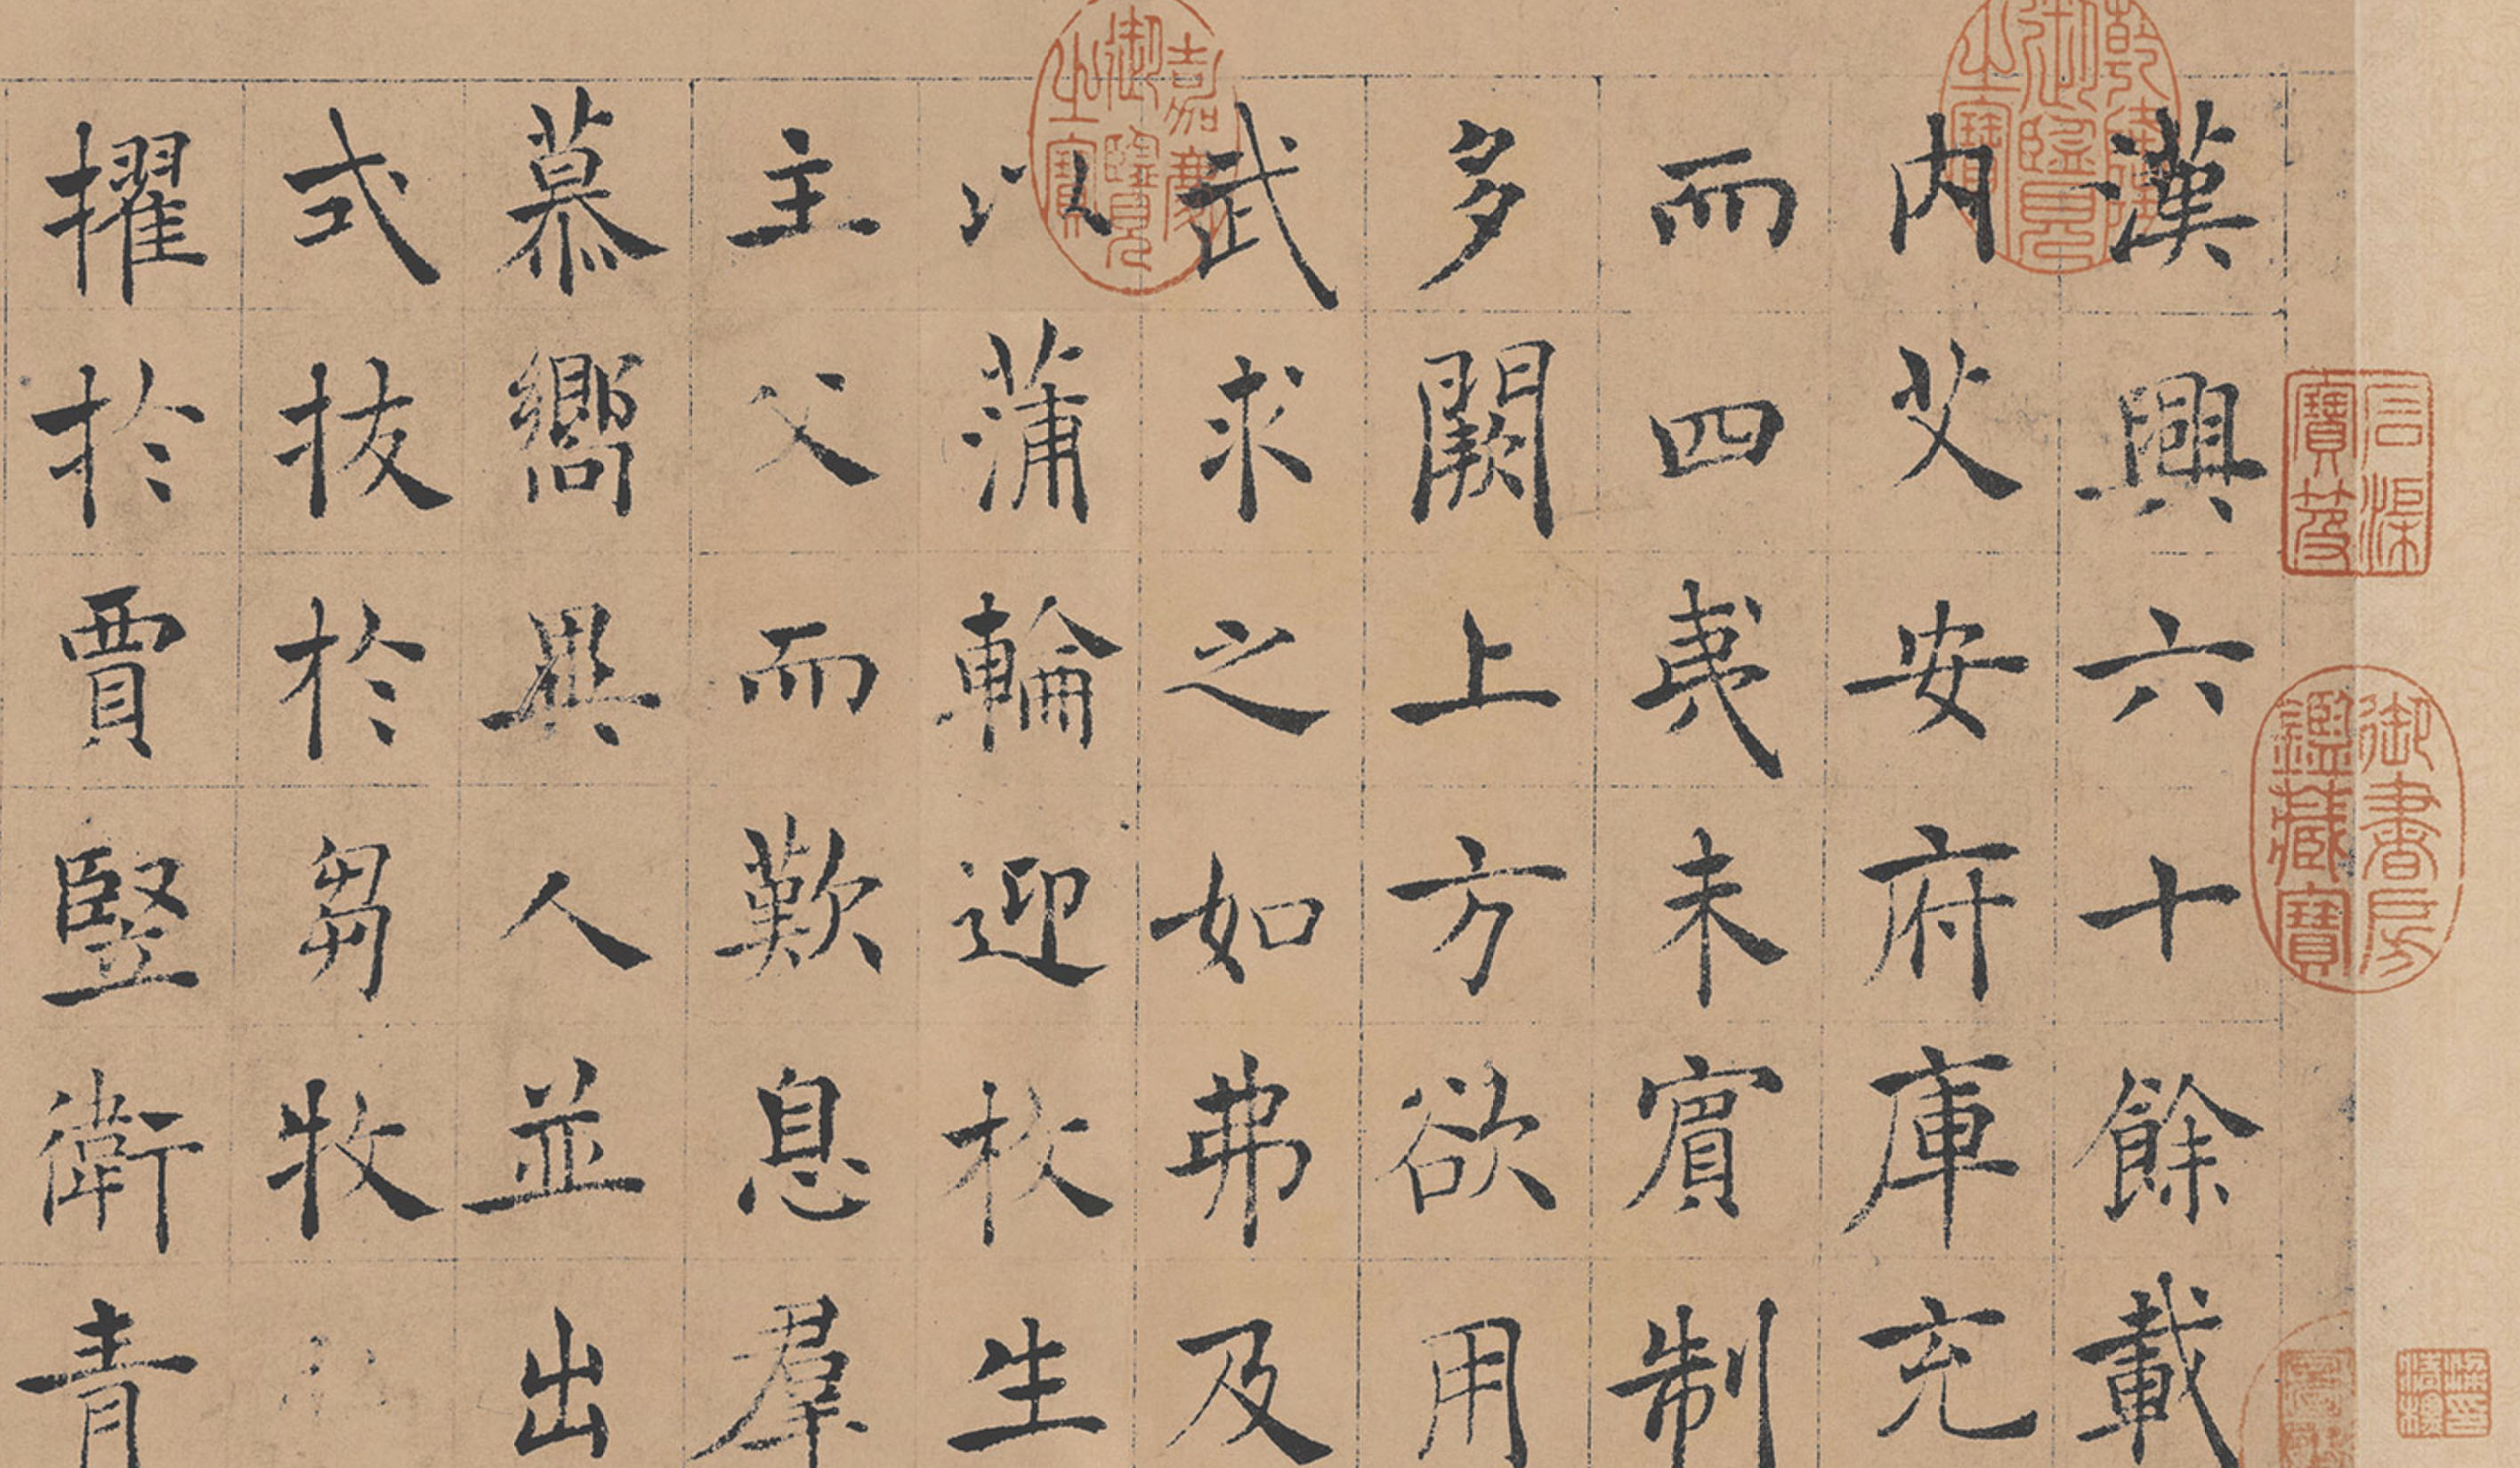 漢興六十餘載
內艾安府庫充
而四夷未賓制
多闕上方欲用
武求之如弗及
以蒲輪迎枚生
主父而歎息羣
慕嚮異人並出
式拔於芻牧
擢於賈豎衛青
嘉慶御覽之寶
乾隆御覽之寶
石渠寶笈
御書房鑑藏寶